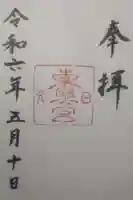 奉拝
令和六年五月十日